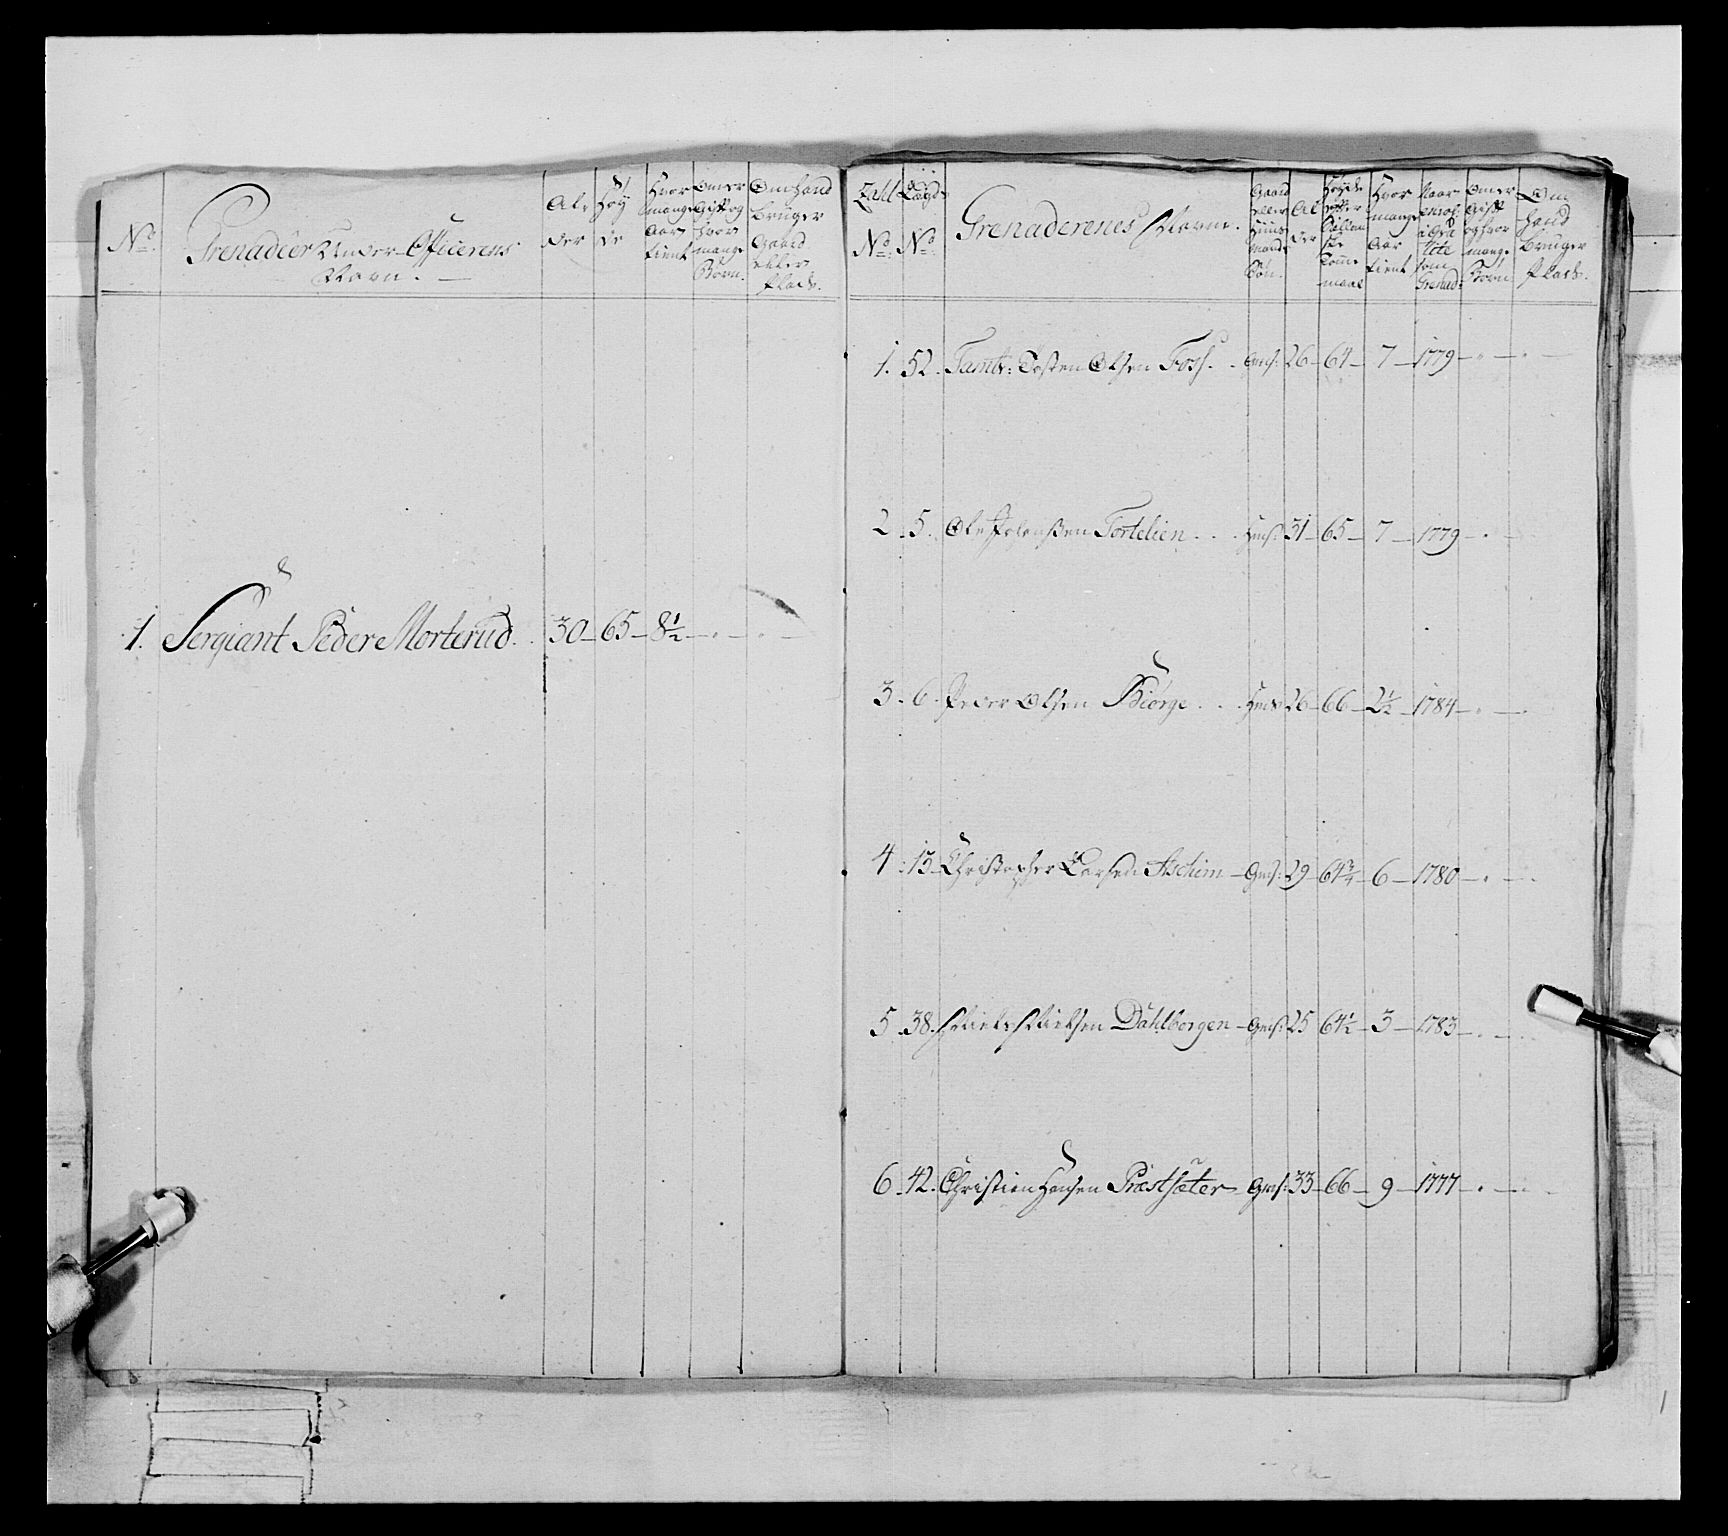 No.
Grenadeer Under-Officerens
Navn.
Al-
der
Høy
de
Hvor
mange
Aar
tient
Om er
Gift og
hvor
mange
Børn.
Om hand
bruger
Gaard
eller
Plads.
1. Sergiant Peder Morterud. 30 - 65 - 8 1/2 - " - " -
Zahl
No.
Lægds
No.
Grenaderenes Navne.
Gaard
eller
Huus
mands
Søn.
Al
der
Høyde
efter
Sællan
ske
Tomme
maal
Hvor
mange
Aar
tient
Naar
enrol:
Tite
som
Grenad:
Om er
Gift
og hvor
mange
Børn
Om
hand
bruger
Plads.
1. 52. Tamb: Tosten Olsen Foss. - Gms: 26 - 64 - 7 - 1779 - " - " -
2. 5. Ole Johanßen Tortelien . . . Hms: 31 - 65 - 7 - 1779 - " -
3. 6. Peder Olsen Biørge . . . Hms 26 - 66 - 2 1/2 - 1784 - " - " -
4. 15. Christopher Larsen Aschim - Gms: 29 - 64 3/4 - 6 - 1780 - " - " -
5. 38. Niels Nielsen Dahlborgen - Gms: 25 64 1/2 - 3 - 1783 - " - " -
6. 42. Christien Hansen Præstsæter - Gms: 33 - 66 - 9 - 1777 - " - " -